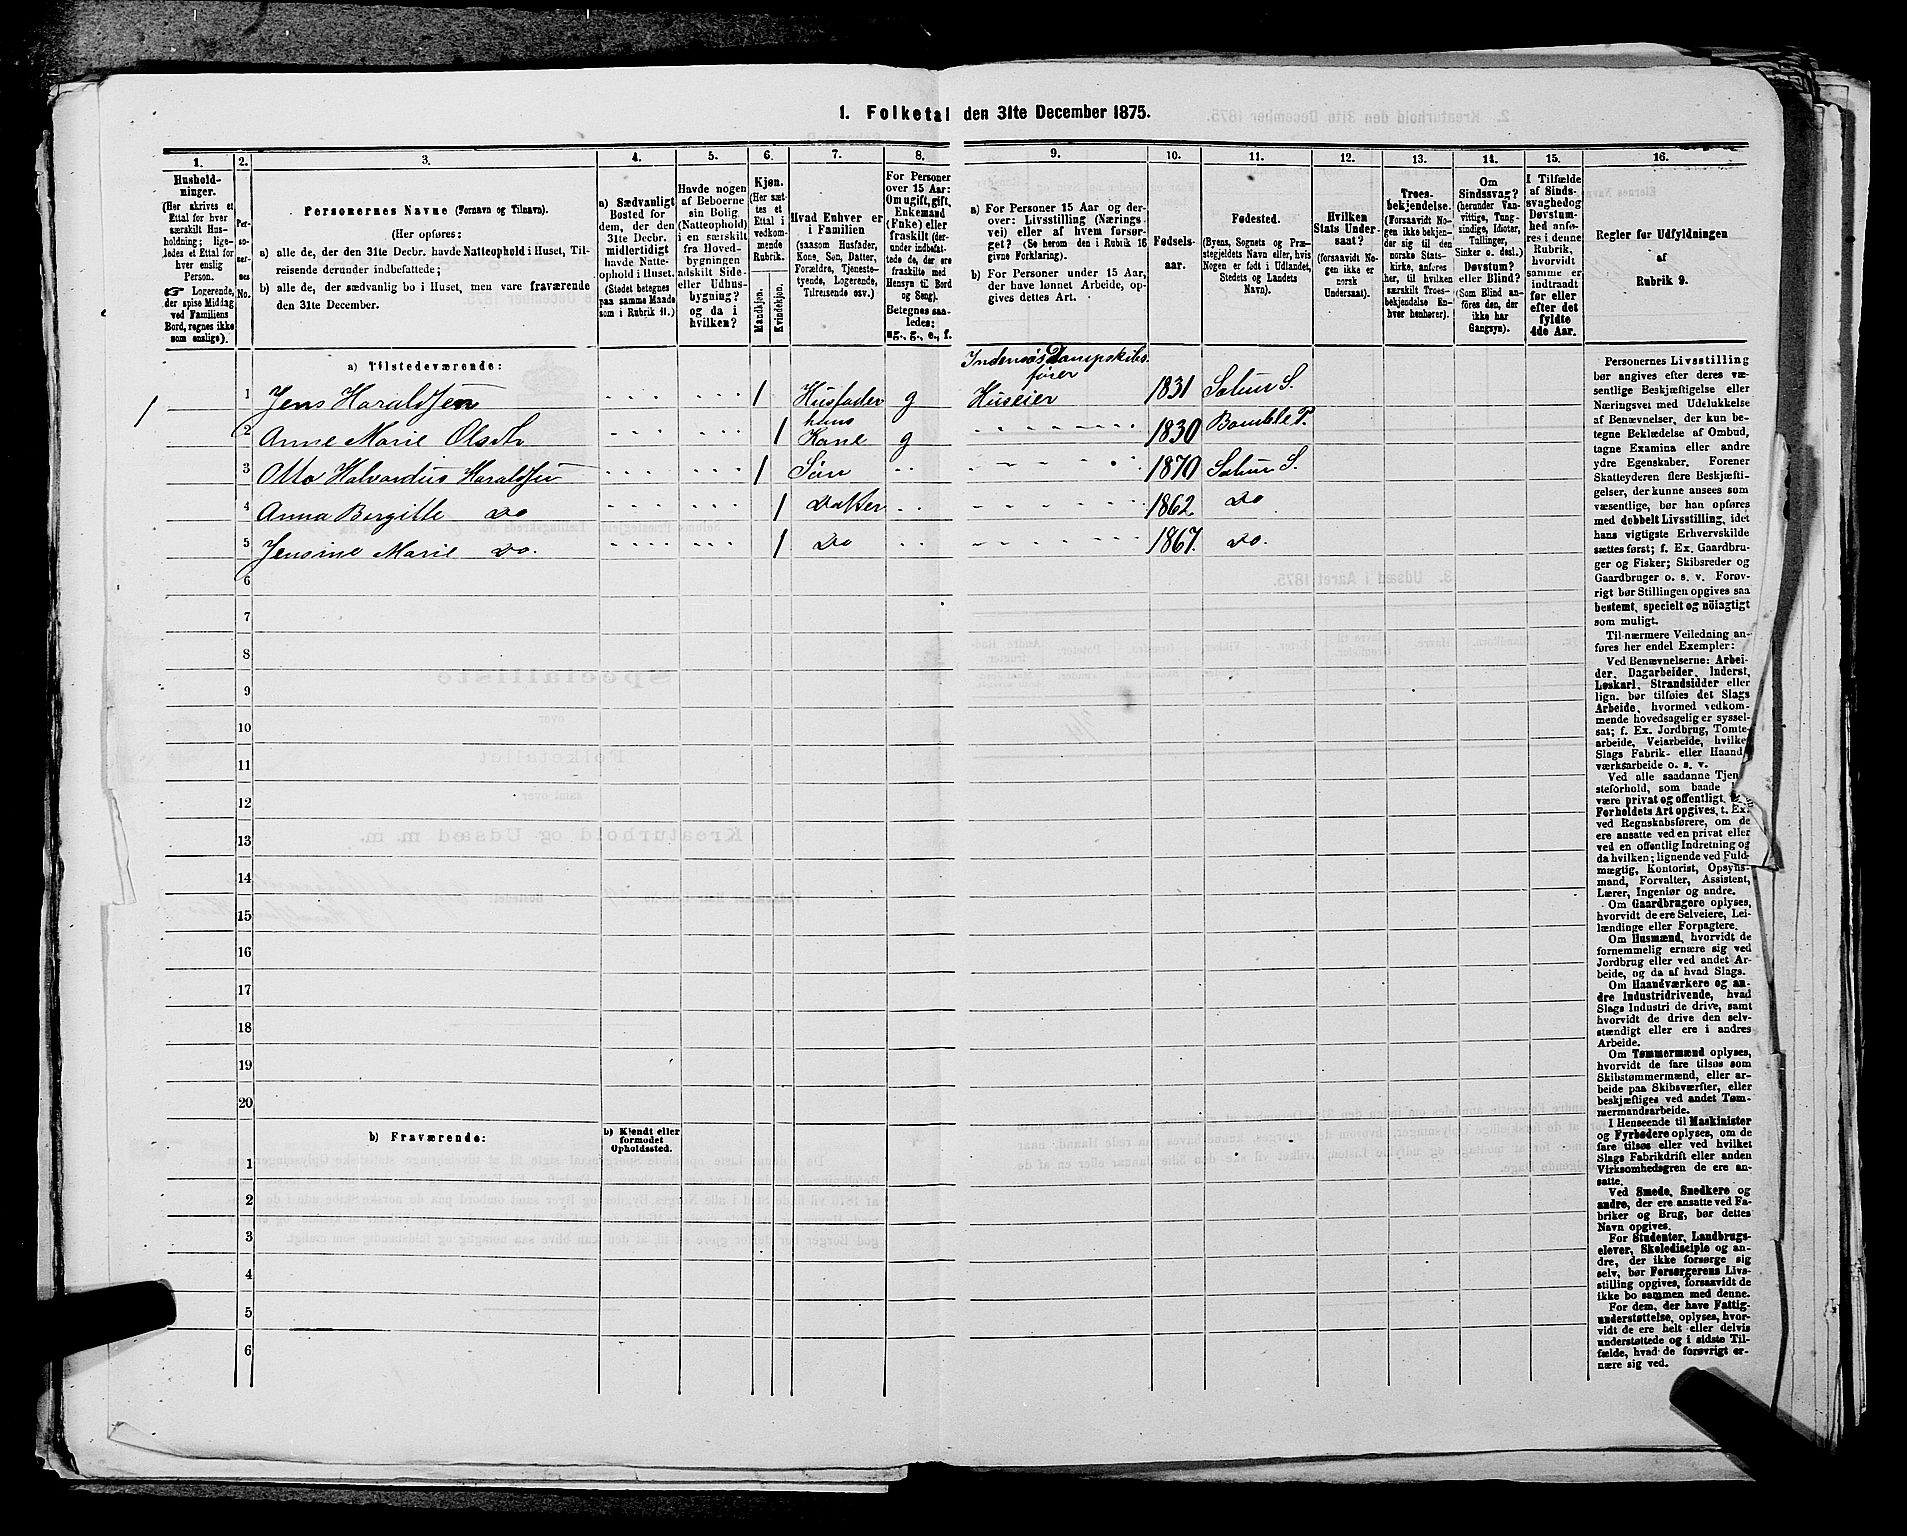 1. Folketal den 31te December 1875.
1. 2. 3. 4. 5. 6. 7. 8. 9. 10. 11. 12. 13. 14. 15. 16.
Hushold-
ninger.
(Her skrives et
Ettal for hver
særskilt Hus-
holdning; lige-
ledes et Ettal for
hver enslig
Person.
☞ Logerende,
der spise Middag
ved Familiens
Bord, regnes ikke
som enslige).
Per-
so-
ner-
nes
No.
Personernes Navne (Fornavn og Tilnavn).
(Her opføres:
a) alle de, der den 31te Decbr. havde Natteophold i Huset, Til-
reisende derunder indbefattede;
b) alle de, der sædvanlig bo i Huset, men vare fraværende
den 31te December.
a) Sædvanligt
Bosted for
dem, der den
31te Decbr.
midlertidigt
havde Natte-
ophold i Huset.
(Stedet betegnes
paa samme Maade
som i Rubrik 11.)
Havde nogen
af Beboerne
sin Bolig
(Natteophold)
i en særskilt
fra Hoved-
bygningen
adskilt Side-
eller Udhus-
bygning?
og da i
hvilken?
Kjøn.
(Her sæt-
tes et
Ettal i
vedkom-
mende
Rubrik.
Mandkjøn.
Kvindekjøn.
Hvad Enhver er
i Familien
(saasom Husfader,
Kone, Søn, Datter,
Forældre, Tjeneste-
tyende, Logerende,
Tilreisende osv.)
For Personer
over 15 Aar:
Om ugift, gift,
Enkemand
(Enke) eller
fraskilt (der-
under indbefat-
tede de, der ere
fraskilte med
Hensyn til Bord
og Seng).
Betegnes saa-
ledes:
ug., g., e., f.
a) For Personer 15 Aar og der-
over: Livsstilling (Nærings-
vei) eller af hvem forsør-
get? (Se herom den i Rubrik 16
givne Forklaring).
b) For Personer under 15 Aar,
der have lønnet Arbeide, op-
gives dettes Art.
Fødsels-
aar.
Fødested.
(Byens, Sognets og Præ-
stegjeldets Navn eller, hvis
Nogen er født i Udlandet,
Stedets og Landets
Navn).
Hvilken
Stats Under-
saat?
(forsaavidt No-
gen ikke er
norsk
Undersaat).
Troes-
bekjendelse.
(Forsaavidt No-
gen ikke bekjen-
der sig til den
norske Stats-
kirke, anføres
her, til hvilken
særskilt Troes-
bekjendelse En-
hver henhører).
Om
Sindssvag?
(herunder Van-
vittige, Tung-
sindige, Idioter,
Tullinger,
Sinker o. desl.)
Døvstum?
eller Blind?
(Som Blind an-
føres den, der
ikke har
Gangsyn).
I Tilfælde
af Sinds-
svaghed og
Døvstum-
hed anfø-
res i denne
Rubrik,
hvorvidt
samme er
indtraadt
før eller
efter det
fyldte
4de Aar.
Regler før Udfyldningen
af
Rubrik 9.
a) Tilstedeværende:
Indensøs Dampskibs
fører
1 1 Jens Haraldsen 1 Husfader g Huseier 1831 Solum S.
hans
2 Anne Marie Olsdtr 1 Kone g 1830 Bamble P.
3 Otto Halvardus Haraldsen 1 Søn 1870 Solum S.
4 Anna Birgitte Do 1 Datter 1862 Do
5 Jensine Marie Do. 1 Do 1867. Do.
6
7
8
9
10
11
12
13
14
15
16
17
18
19
20
b) Fraværende:
b) Kjendt eller
formodet
Opholdssted.
1
2
3
4
5
6
Personernes Livsstilling
bør angives efter deres væ-
sentlige Beskjæftigelse eller
Næringsvei med Udelukkelse
af Benævnelser, der kun be-
tegne Beklædelse af Ombud,
tagne Examina eller andre
ydre Egenskaber. Forener
Skatteyderen flere Beskjæfti-
gelser, der kunne ansees som
væsentlige, bør han opføres
med dobbelt Livsstilling, idet
hans vigtigste Erhvervskilde
sættes først; f. Ex. Gaardbru-
ger og Fisker; Skibsreder og
Gaardbruger o. s. v. Forøv-
rigt bør Stillingen opgives saa
bestemt, specielt og nöiagtigt
som muligt.
Til nærmere Veiledning an-
føres her endel Exempler:
Ved Benævnelserne: Arbei-
der, Dagarbeider, Inderst,
Løskarl, Strandsidder eller
lign. bør tilføies det Slags
Arbeide, hvormed vedkom-
mende hovedsagelig er syssel-
sat; f. Ex. Jordbrug, Tomte-
arbeide, Veiarbeide, hvilket
Slags Fabrik- eller Haand-
værksarbeide o. s. v.
Ved alle saadanne Tjen-
steforhold, som baade
være privat og offentligt,
Forholdets Art opgives, t. Ex.
ved Regnskabsførere, om de
ere ansatte ved en privat eller
ved en offentlig Indretning og
da hvilken; lignende ved Fuld-
mægtig, Kontorist, Opsyns-
mand, Forvalter, Assistent,
Lærer, Ingeniør og andre.
Om Gaardbrugere oplyses,
hvorvidt de ere Selveiere, Lei-
lændinge eller Forpagtere.
Om Husmænd, hvorvidt de
fornemmelig ernære sig ved
Jordbrug eller ved andet Ar-
beide, og da af hvad Slags.
Om Haandværkere og an-
dre Industridrivende, hvad
Slags Industri de drive, samt
hvorvidt de drive den selv-
stændigt eller ere i andres
Arbeide.
Om Tømmermænd oplyses,
hvorvidt de fare tilsøs som
Skibstømmermænd, eller ar-
beide paa Skibsværfter, eller
beskjæftiges ved andet Tøm-
mermandsarbeide.
I Henseende til Maskinister
og Fyrbødere oplyses, om de
fare tilsøs eller ved hvilket
Slags Fabrikdrift eller anden
Virksomhedsgren de ere an-
satte.
Ved Smede, Snedkere og
andre, der ere ansatte ved Fa-
briker og Brug, bør dettes
Navn opgives.
For Studenter, Landbrugs-
elever, Skoledisciple og an-
dre, der ikke forsørge sig
selv, bør Forsørgerens Livs-
stilling opgives, forsaavidt de
ikke bo sammen med denne.
For dem, der have Fattig-
understøttelse, oplyses, hvor-
vidt de ere helt eller delvis
understøttede og i sidste Til-
fælde, hvad de forøvrigt er-
nære sig ved.